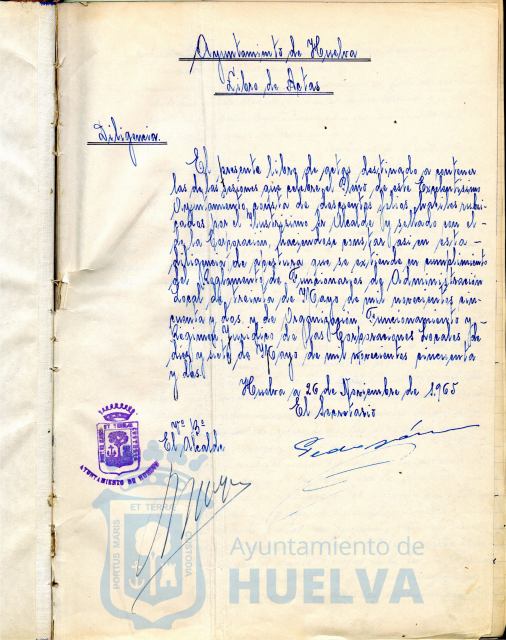 Ayuntamiento de Huelva
Libro de Actas
Diligencia.
El presente libro de actas destinado a contener
las de las sesiones que celebre el Pleno de este Excelentísimo
Ayuntamiento, consta de doscientos folios, hábiles rubri-
cados por el Ilustrísimo Sr. Alcalde y sellados con el
de la Corporación, haciéndose constar así en esta
diligencia de apertura que se extiende en cumplimiento
del Reglamento de Funcionarios de Administración
Local de treinta de Mayo de mil novecientos cin-
cuenta y dos, y de Organización Funcionamiento y
Régimen Jurídico de las Corporaciones Locales de
diez y siete de Mayo de mil novecientos cincuenta
y dos.
Huelva a 26 de Noviembre de 1.965
El Secretario
Vº Bº
El Alcalde
AYUNTAMIENTO DE HUELVA
PORTUS MARIS ET TERRE CUSTODIA
Ayuntamiento de
HUELVA